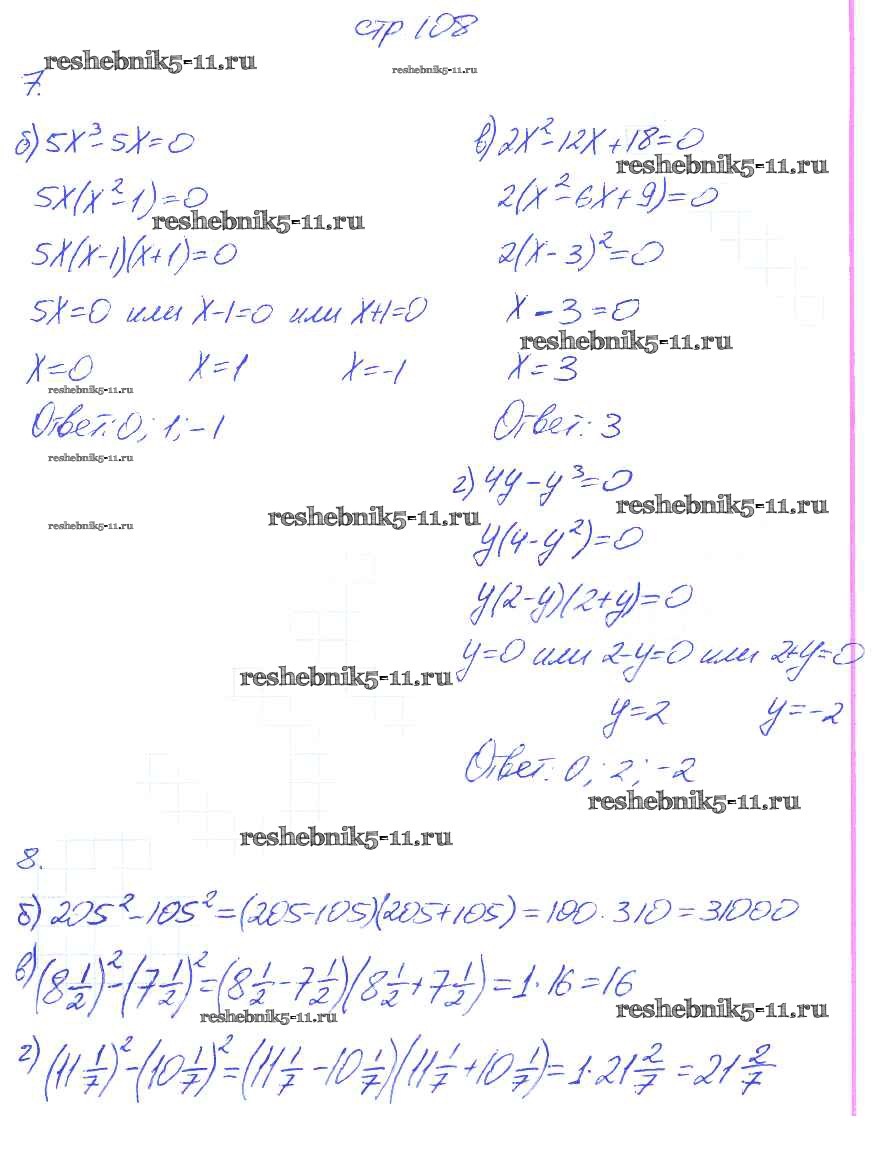 стр 108
reshebnik5-11.ru
reshebnik5-11.ru
7.
б) 5x³-5x=0
5x(x²-1)=0
reshebnik5-11.ru
5x(x-1)(x+1)=0
5x=0 или x-1=0 или x+1=0
x=0 x=1 x=-1
reshebnik5-11.ru
Ответ: 0; 1; -1
reshebnik5-11.ru
reshebnik5-11.ru
в) 2x²-12x+18=0
reshebnik5-11.ru
2(x²-6x+9)=0
2(x-3)²=0
x-3=0
reshebnik5-11.ru
x=3
Ответ: 3
г) 4y-y³=0
reshebnik5-11.ru
reshebnik5-11.ru
y(4-y²)=0
y(2-y)(2+y)=0
y=0 или 2-y=0 или 2+y=0
reshebnik5-11.ru
y=2 y=-2
Ответ: 0; 2; -2
reshebnik5-11.ru
reshebnik5-11.ru
8.
б) 205²-105²=(205-105)(205+105)=100·310=31000
в) (8 1/2)²-(7 1/2)²=(8 1/2-7 1/2)(8 1/2+7 1/2)=1·16=16
reshebnik5-11.ru
reshebnik5-11.ru
г) (11 1/7)²-(10 1/7)²=(11 1/7-10 1/7)(11 1/7+10 1/7)=1·21 2/7=21 2/7